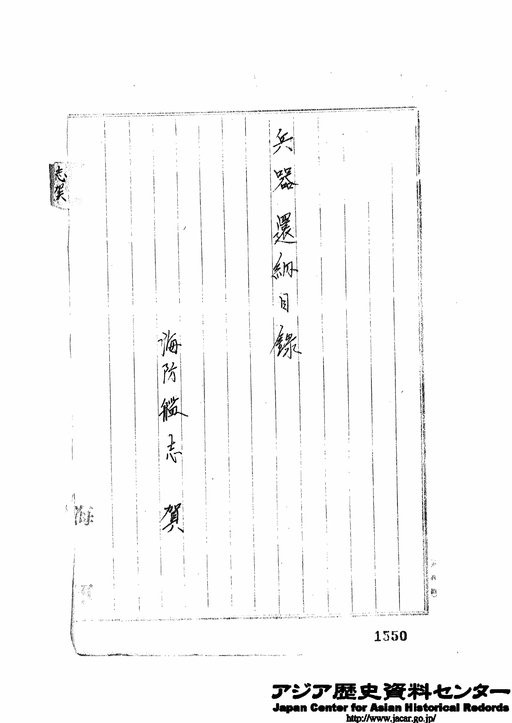 兵器還納目錄
海防艦志賀
志賀
海
1550
アジア歴史資料センター
Japan Center for Asian Historical Redords
http://www.jacar.go.jp/